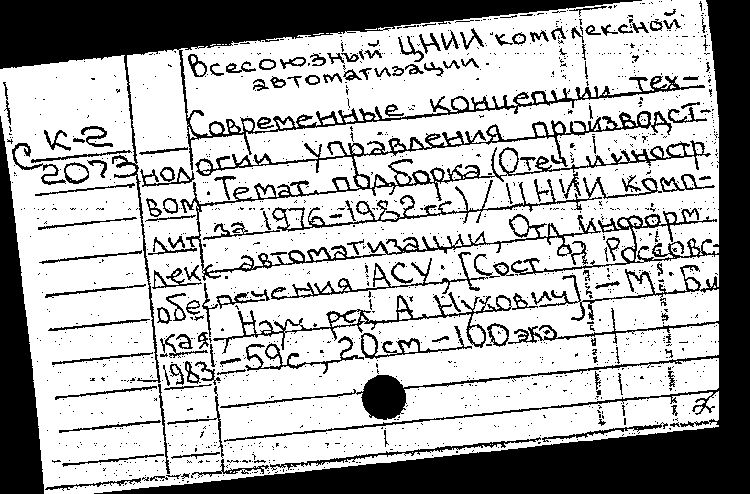 Всесоюзный ЦНИИ комплексной
автоматизации.
С К-2
2073
Современные концепции тех-
нологии управления производст-
вом. Темат. подборка (Отеч. и иностр.
лит. за 1976-1982 гг.) / ЦНИИ комп-
лекс. автоматизации, Отд. информ.
обеспечения АСУ; [Сост. Россовс-
кая; Науч. ред. А. Нухович]. - М.: Б.и
1983 - 59 с.; 20 см. - 100 экз
2